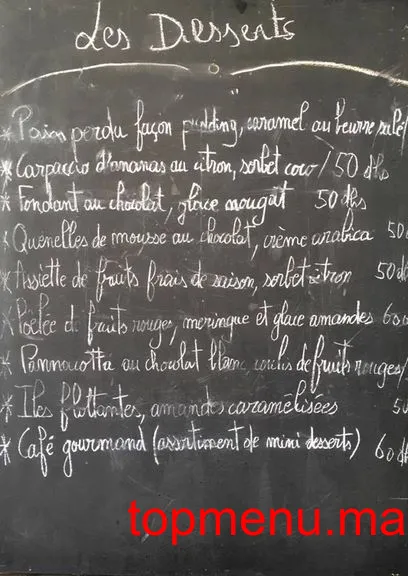 Les Desserts
* Pain perdu façon pudding, caramel au beurre salé/
* Carpaccio d'ananas au citron, sorbet coco / 50 dhs
* Fondant au chocolat, glace nougat 50 dhs
* Quenelles de mousse au chocolat, crème arabica 50
* Assiette de fruits frais de saison, sorbet citron 50 d
* Poêlée de fruits rouges, meringue et glace amandes 60
* Pannacotta au chocolat blanc, coulis de fruits rouges/
* Iles flottantes, amandes caramélisées 50
* Café gourmand (assortiment de mini desserts) 60 d
topmenu.ma